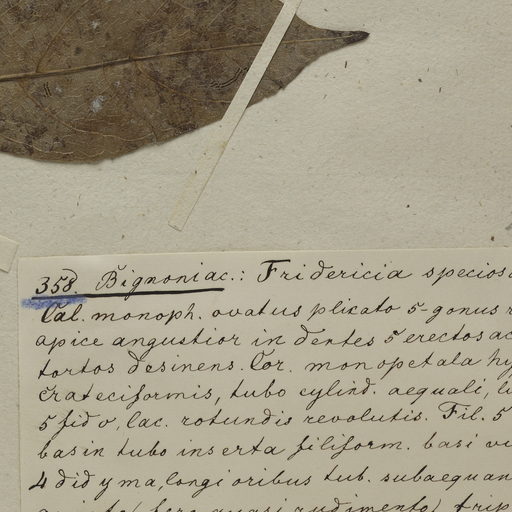 358. Bignoniac.: Fridericia specios
Cal. monoph. ovatus plicato 5-gonus
apice angustior in dentes 5 erectos ac
tortos desinens. Cor. monopetala hy
crateciformis, tubo cylind. aequali, l
5 fido, lac. rotundis revolutis. Fil. 5
basin tubo inserta filiform. basi v
4 didyma, longioribus tub. subaequan
fere quasi rudimento) trip